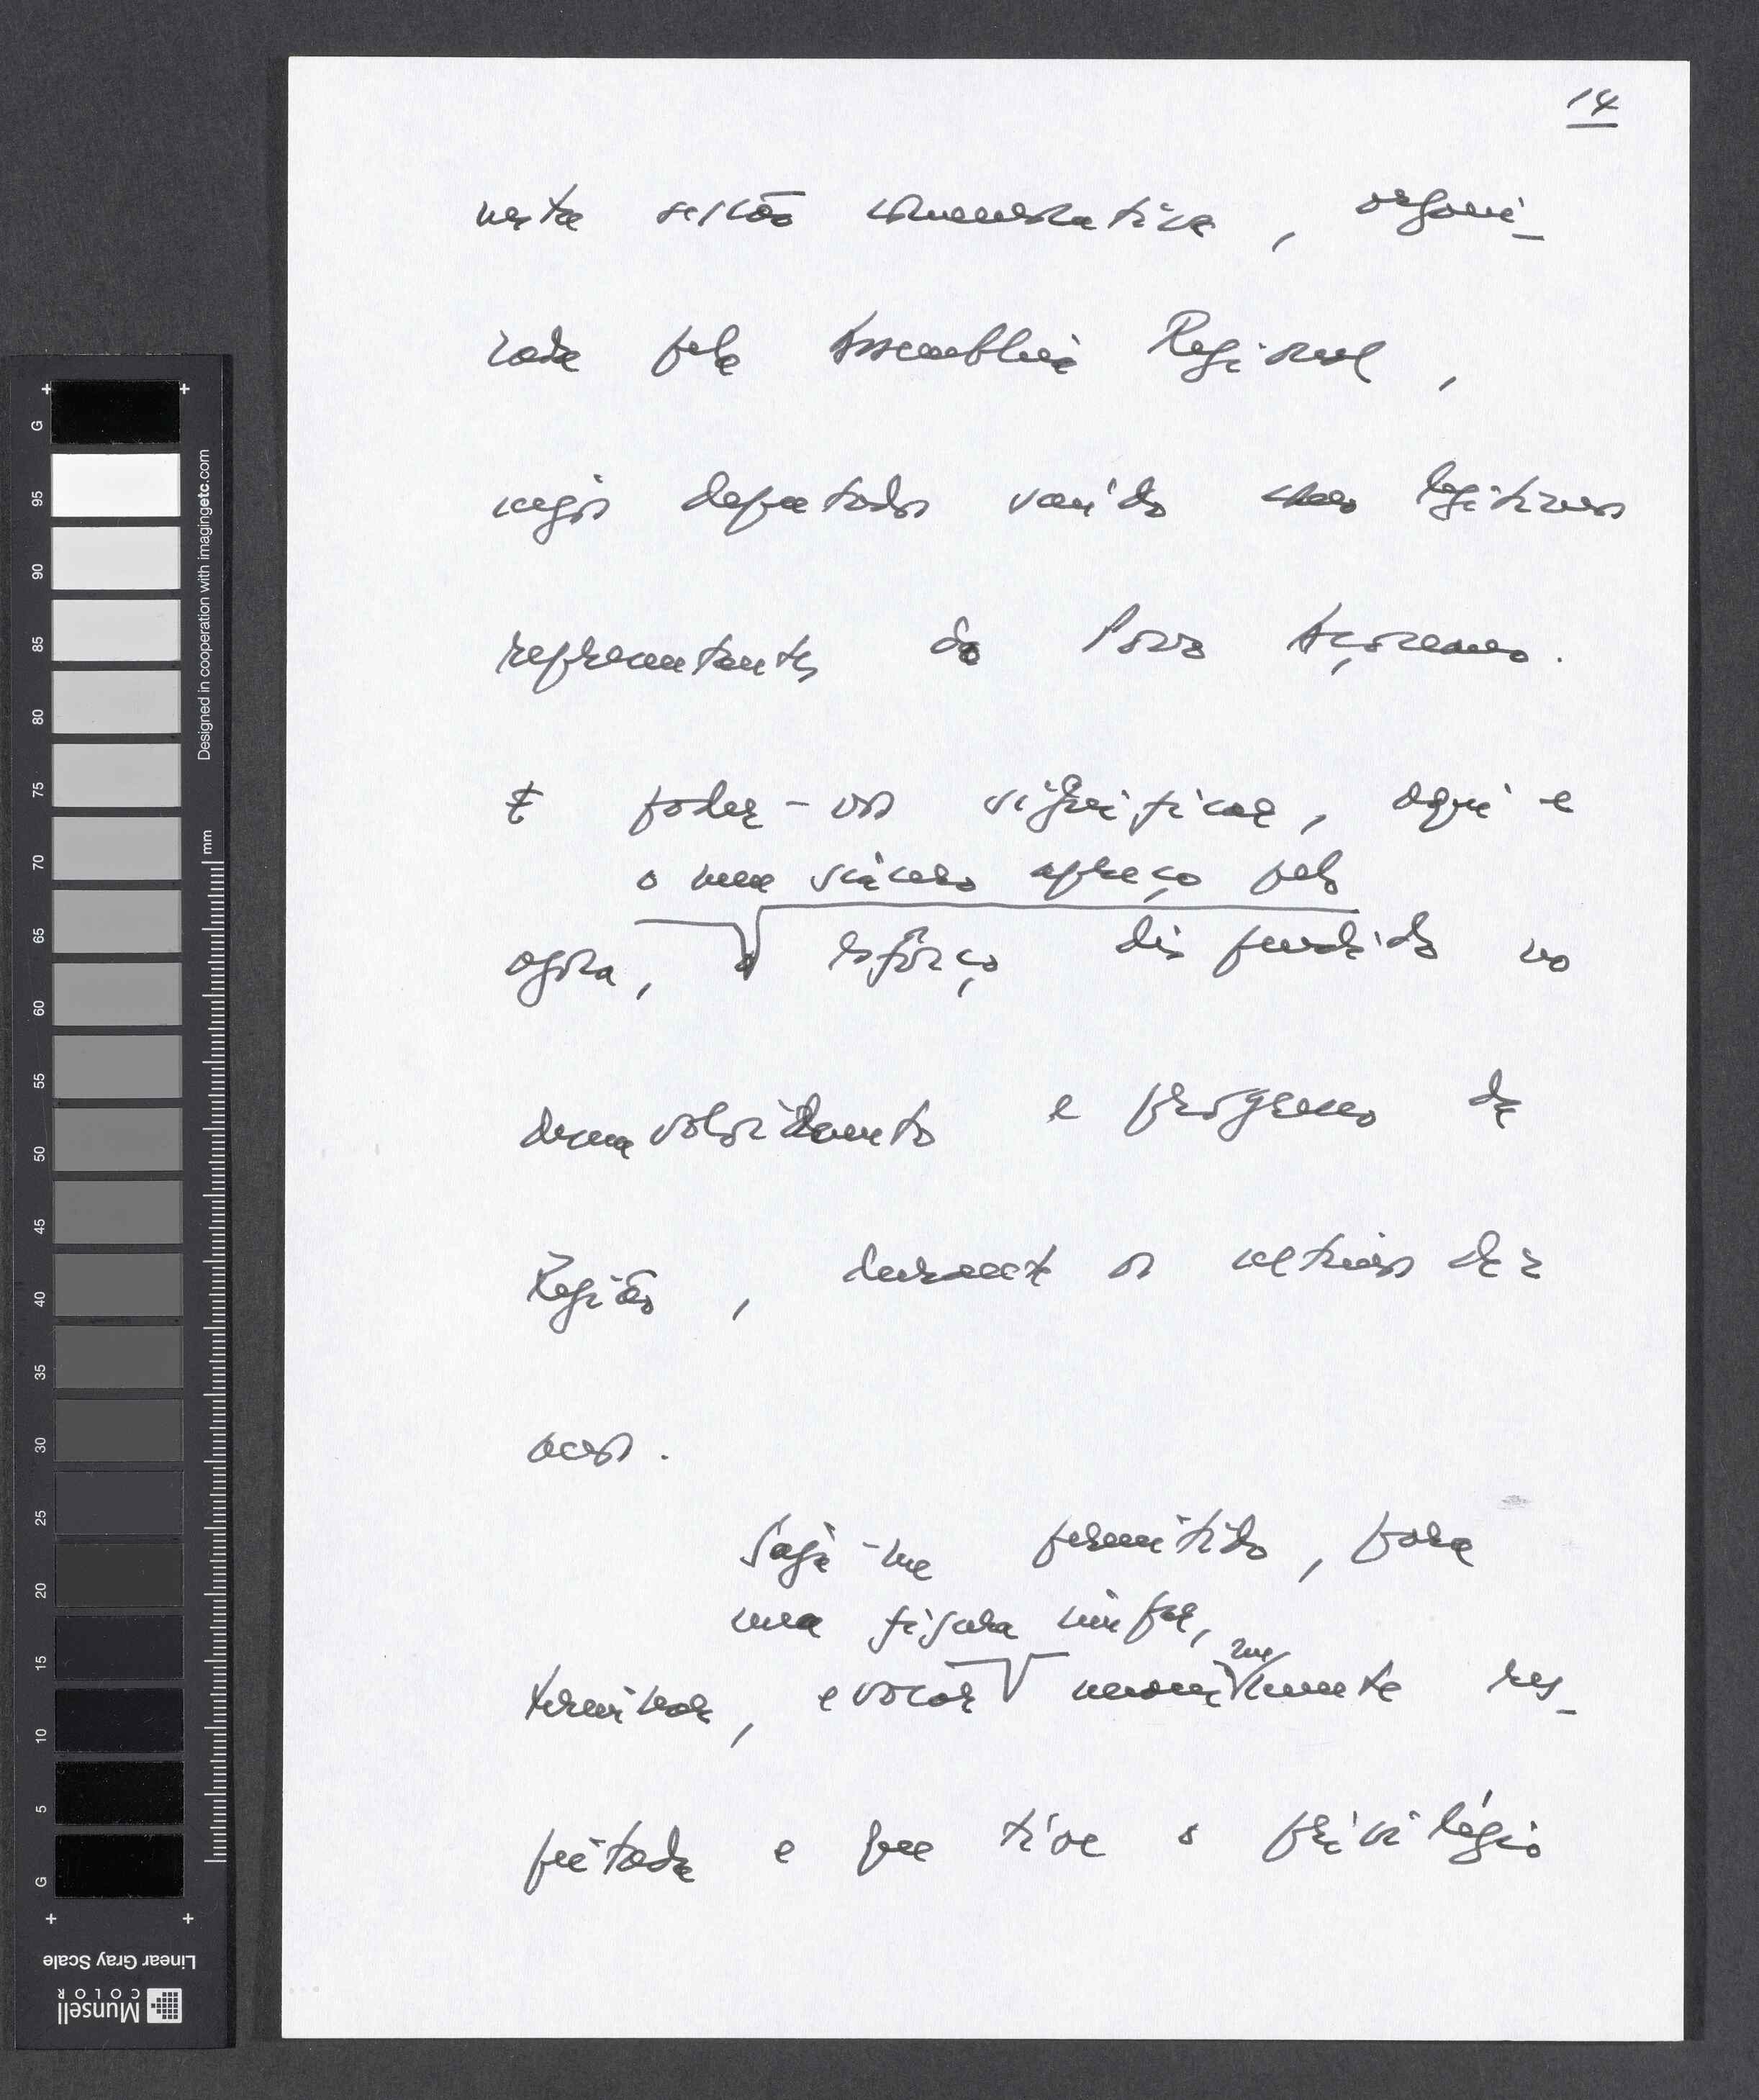 14
nesta sessão comemorativa, organi-
zada pela Assembleia Regional,
cujos deputados saúdo como legítimos
representantes do Povo Açoreano.
E poder-vos significar, aqui e
o meu sincero apreço pelo
agora, esfôrço dispendido no
desenvolvimento e progresso da
Região, durante os ultimos dez
anos.
Seja-me permitido, para
uma figura impar,
terminar, evocar unanimemente res-
peitada e que tive o privilégio
G 95 90 85 80 75 70 65 60 55 50 45 40 35 30 25 20 15 10 5 G
mm
Designed in cooperation with imagingetc.com
Linear Gray Scale
Munsell
COLOR